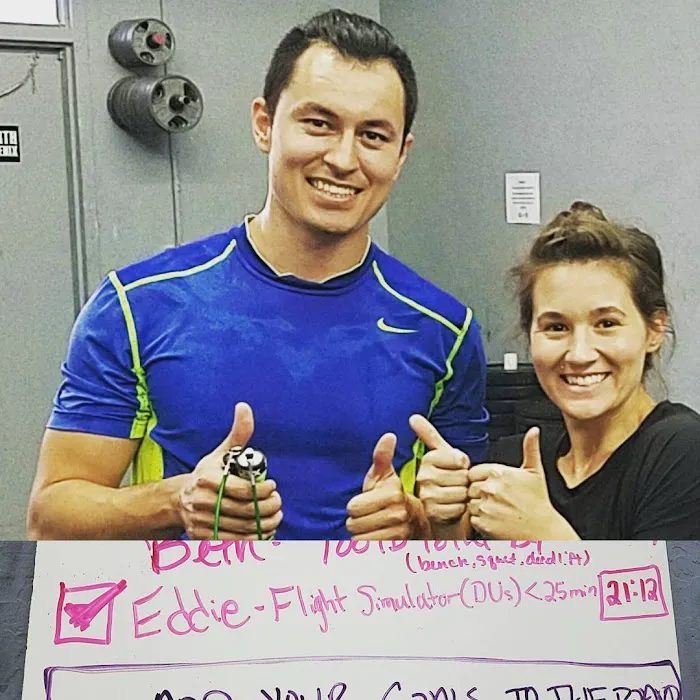 Beth - 
(bench, squat, deadlift)
Eddie - Flight Simulator (DUs) < 25 min 21:12
ADD YOUR GOALS TO THE BOARD